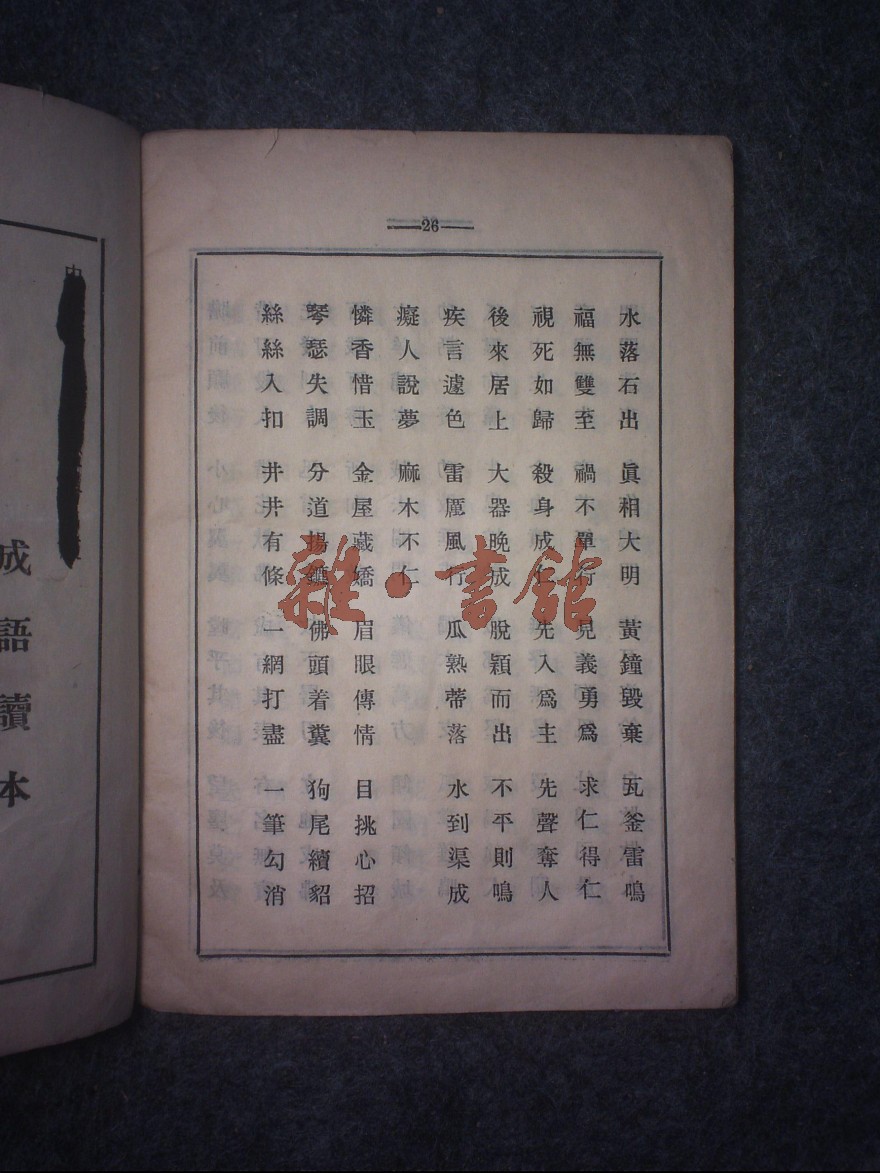 26
水落石出 眞相大明 黃鐘毀棄 瓦釜雷鳴
福無雙至 禍不單行 見義勇爲 求仁得仁
視死如歸 殺身成仁 先入爲主 先聲奪人
後來居上 大器晚成 脫穎而出 不平則鳴
疾言遽色 雷厲風行 瓜熟蒂落 水到渠成
癡人說夢 麻木不仁
憐香惜玉 金屋藏嬌 眉眼傳情 目挑心招
琴瑟失調 分道揚鑣 佛頭着糞 狗尾續貂
絲絲入扣 井井有條 一網打盡 一筆勾消
成語讀本
雜·書館